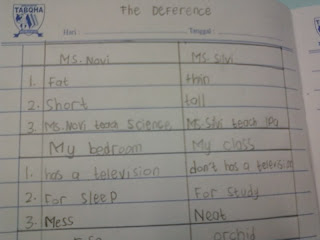 TARQHA
The Deference
Hari : Tanggal :
Ms. Novi Ms. Silvi
1. Fat thin
2. Short tall
3. Ms. Novi teach Science, Ms. Silvi teach
My bedroom My class
1. has a television don't has a television
2. For sleep For study
3. Mess Neat
orchid